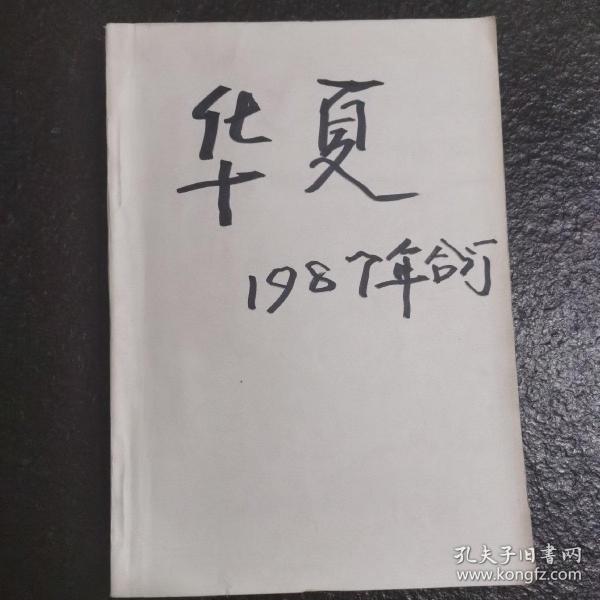 华夏
1987年合订
孔夫子旧書网
www.kongfz.com